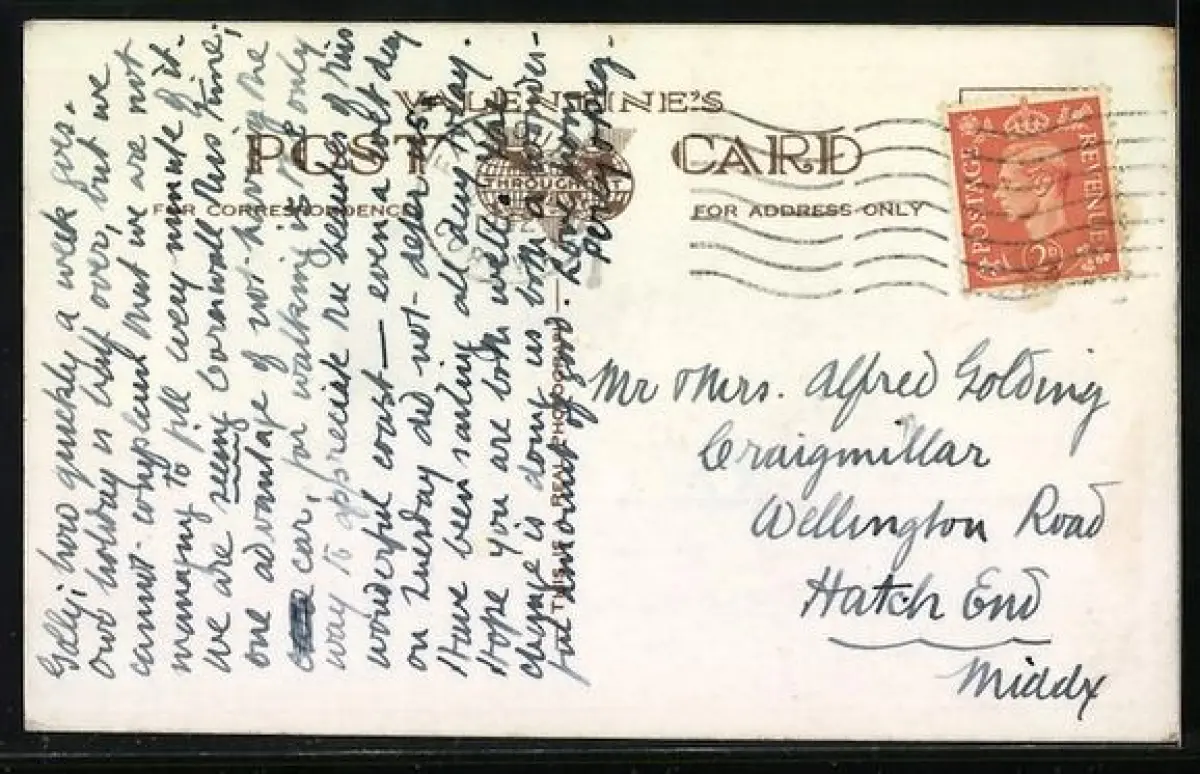 VALENTINE'S
POST CARD
THROUGHOUT
FOR CORRESPONDENCE
FOR ADDRESS ONLY
POSTAGE
REVENUE
THIS IS A REAL PHOTOGRAPH
Golly; how quickly a week goes.
Our holiday is half over, but we
cannot complain that we are not
managing to fill every minute of it.
We are seeing Cornwall this time;
one advantage of not having the
car, for walking is the only
way to appreciate the beauties of this
wonderful coast — even a wet day
on Tuesday did not deter us!
Have been sailing all day today.
Hope you are both well: the
change is doing us both a power-
ful amount of good. Love from
Percy
Mr & Mrs. Alfred Golding
Craigmillar
Wellington Road
Hatch End
Middx